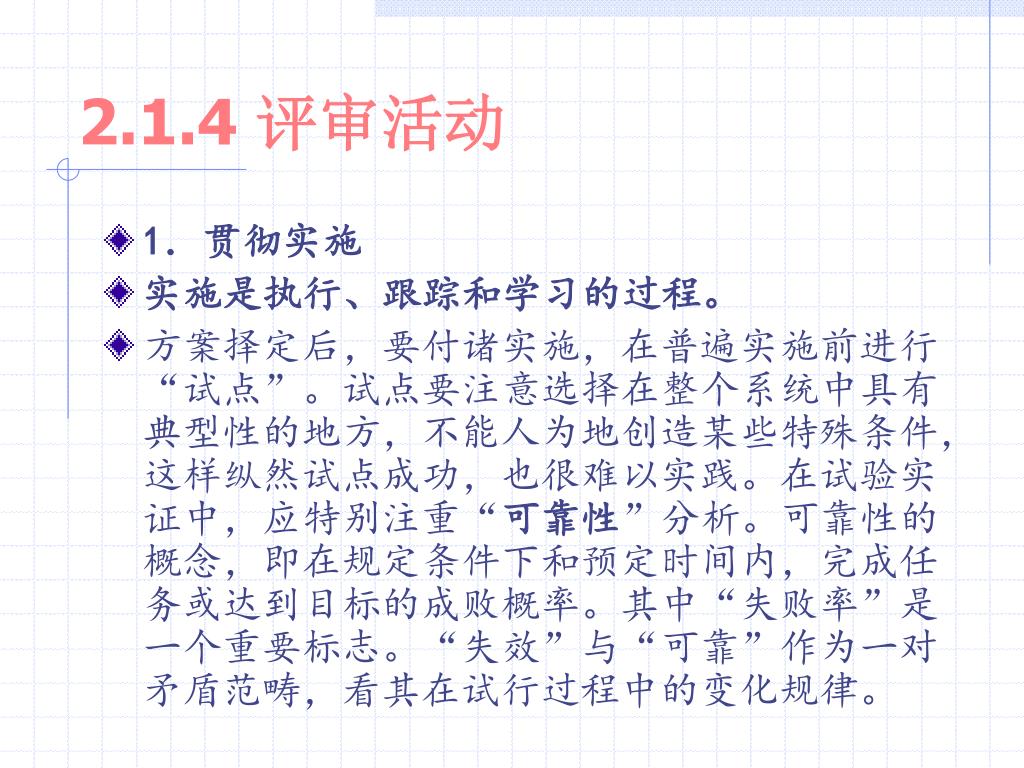 2.1.4 评审活动
1. 贯彻实施
实施是执行、跟踪和学习的过程。
方案择定后，要付诸实施，在普遍实施前进行
“试点”。试点要注意选择在整个系统中具有
典型性的地方，不能人为地创造某些特殊条件，
这样纵然试点成功，也很难以实践。在试验实
证中，应特别注重“可靠性”分析。可靠性的
概念，即在规定条件下和预定时间内，完成任
务或达到目标的成败概率。其中“失败率”是
一个重要标志。“失效”与“可靠”作为一对
矛盾范畴，看其在试行过程中的变化规律。